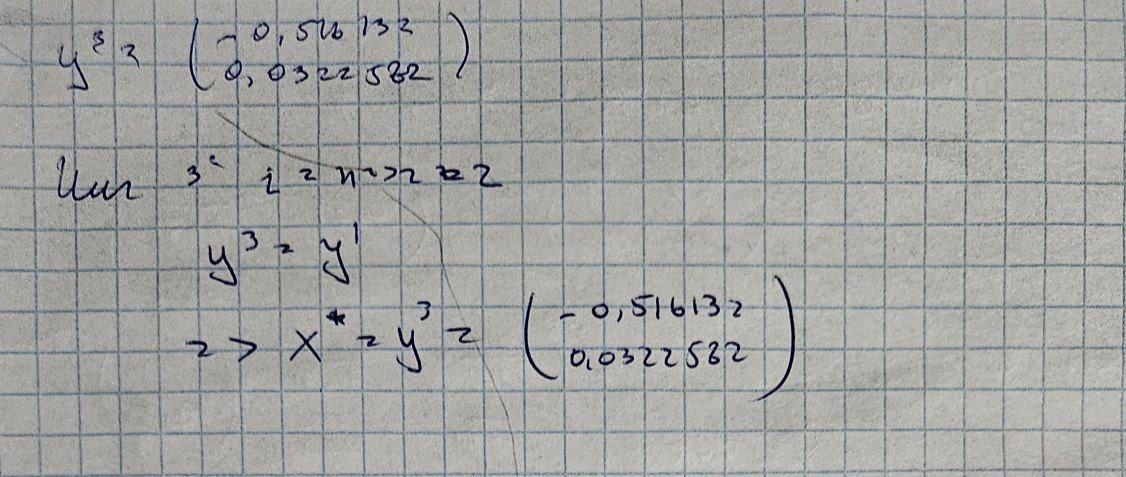 y³ = (-0,516132
0,0322582)
Шаг 3: i = n => 2 = 2
y³ = y¹
=> x* = y³ = (-0,516132
0,0322582)